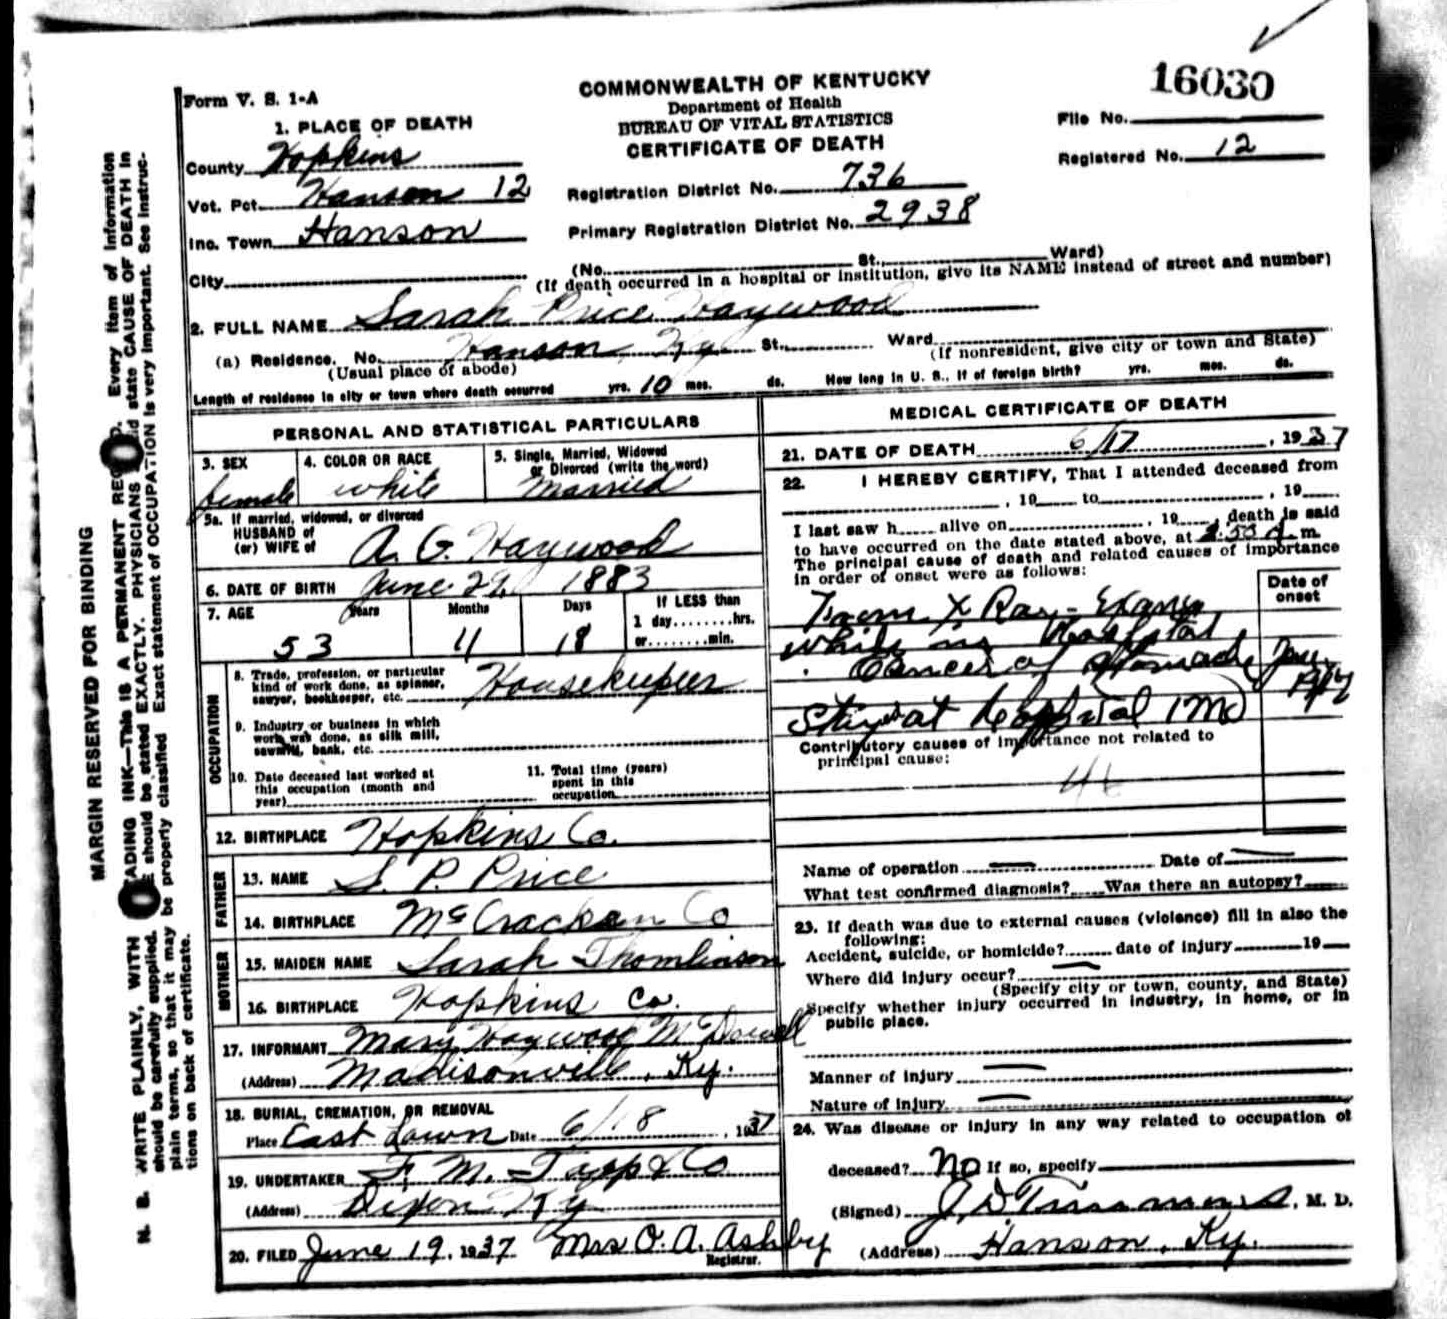 16030
Form V. S. 1-A
COMMONWEALTH OF KENTUCKY
Department of Health
BUREAU OF VITAL STATISTICS
CERTIFICATE OF DEATH
File No.
Registered No. 12
1. PLACE OF DEATH
County Hopkins
Vot. Pct. Hanson 12
Inc. Town Hanson
City
Registration District No. 736
Primary Registration District No. 2938
(No. St., Ward)
(If death occurred in a hospital or institution, give its NAME instead of street and number)
2. FULL NAME Sarah Price Haywood
(a) Residence. No. Hanson, Ky. St., Ward
(Usual place of abode)
(If nonresident, give city or town and State)
Length of residence in city or town where death occurred yrs. 10 mos. ds. How long in U. S., if of foreign birth? yrs. mos. ds.
PERSONAL AND STATISTICAL PARTICULARS
3. SEX female
4. COLOR OR RACE white
5. Single, Married, Widowed or Divorced (write the word) Married
5a. If married, widowed, or divorced
HUSBAND of
(or) WIFE of A. G. Haywood
6. DATE OF BIRTH June 29, 1883
7. AGE Years 53 Months 11 Days 18 If LESS than 1 day........hrs. or........min.
OCCUPATION
8. Trade, profession, or particular kind of work done, as spinner, sawyer, bookkeeper, etc. Housekeeper
9. Industry or business in which work was done, as silk mill, sawmill, bank, etc.
10. Date deceased last worked at this occupation (month and year)
11. Total time (years) spent in this occupation
12. BIRTHPLACE Hopkins Co.
FATHER
13. NAME S. P. Price
14. BIRTHPLACE McCracken Co
MOTHER
15. MAIDEN NAME Sarah Thomlinson
16. BIRTHPLACE Hopkins Co.
17. INFORMANT Mary Haywood McDowell
(Address) Madisonville, Ky.
18. BURIAL, CREMATION, OR REMOVAL
Place East Lawn Date 6/18, 1937
19. UNDERTAKER F. M. Tapp & Co
(Address) Dixon Ky
20. FILED June 19, 1937 Mrs O. A. Ashby
Registrar.
MEDICAL CERTIFICATE OF DEATH
21. DATE OF DEATH 6/17, 1937
22. I HEREBY CERTIFY, That I attended deceased from
, 19 to , 19
I last saw h alive on , 19 , death is said
to have occurred on the date stated above, at 2:50 A. m.
The principal cause of death and related causes of importance
in order of onset were as follows:
Date of onset
From X Ray - Exam
while in Hospital
Cancer of Stomach Jan
Stay at Hospital
Contributory causes of importance not related to
principal cause:
46
Name of operation Date of
What test confirmed diagnosis? Was there an autopsy?
23. If death was due to external causes (violence) fill in also the
following:
Accident, suicide, or homicide? date of injury 19
Where did injury occur?
(Specify city or town, county, and State)
Specify whether injury occurred in industry, in home, or in
public place.
Manner of injury
Nature of injury
24. Was disease or injury in any way related to occupation of
deceased? No If so, specify
(Signed) , M. D.
(Address) Hanson, Ky.
MARGIN RESERVED FOR BINDING
N. B. WRITE PLAINLY, WITH ADING INK—THIS IS A PERMANENT REC D. Every item of information
should be carefully supplied. should be stated EXACTLY. PHYSICIANS state CAUSE OF DEATH in
plain terms, so that it may be properly classified. Exact statement of OCCUPATION is very important. See instruc-
tions on back of certificate.